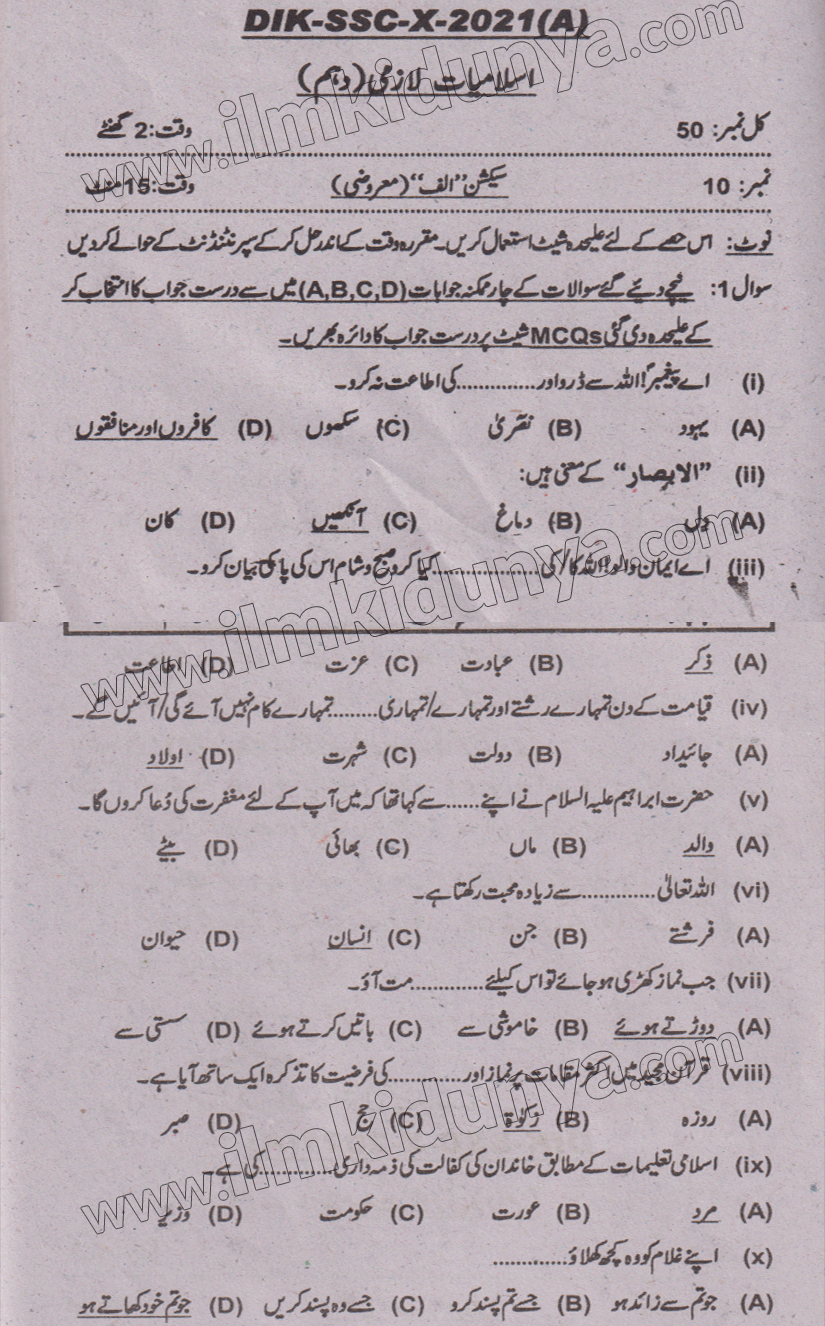 DIK-SSC-X-2021(A)
اسلامیات لازمی (دہم)
کل نمبر: 50 وقت: 2 گھنٹے
نمبر: 10 سیکشن "الف" (معروضی) وقت: 15 منٹ
نوٹ: اس حصے کے لئے علیحدہ شیٹ استعمال کریں۔ مقررہ وقت کے اندر حل کر کے سپرنٹنڈنٹ کے حوالے کر دیں
سوال 1: نیچے دیئے گئے سوالات کے چار ممکنہ جوابات (A,B,C,D) میں سے درست جواب کا انتخاب کر
کے علیحدہ دی گئی MCQs شیٹ پر درست جواب کا دائرہ بھریں۔
(i) اے پیغمبرؐ! اللہ سے ڈرو اور ............... کی اطاعت نہ کرو۔
(A) یہود (B) نصریٰ (C) سکھوں (D) کافروں اور منافقوں
(ii) "الابصار" کے معنی ہیں:
(A) دل (B) دماغ (C) آنکھیں (D) کان
(iii) اے ایمان والو! اللہ کا/کی .................... کیا کرو صبح و شام اس کی پاکی بیان کرو۔
(A) ذکر (B) عبادت (C) عزت (D) اطاعت
(iv) قیامت کے دن تمہارے رشتے اور تمہارے/تمہاری ........ تمہارے کام نہیں آئے گی/آئیں گے۔
(A) جائیداد (B) دولت (C) شہرت (D) اولاد
(v) حضرت ابراہیم علیہ السلام نے اپنے ...... سے کہا تھا کہ میں آپ کے لئے مغفرت کی دُعا کروں گا۔
(A) والد (B) ماں (C) بھائی (D) بیٹے
(vi) اللہ تعالیٰ ............. سے زیادہ محبت رکھتا ہے۔
(A) فرشتے (B) جن (C) انسان (D) حیوان
(vii) جب نماز کھڑی ہو جائے تو اس کیلئے ............. مت آؤ۔
(A) دوڑتے ہوئے (B) خاموشی سے (C) باتیں کرتے ہوئے (D) سستی سے
(viii) قرآن مجید میں اکثر مقامات پر نماز اور ............. کی فرضیت کا تذکرہ ایک ساتھ آیا ہے۔
(A) روزہ (B) زکوٰۃ (C) حج (D) صبر
(ix) اسلامی تعلیمات کے مطابق خاندان کی کفالت کی ذمہ داری ............. کی ہے۔
(A) مرد (B) عورت (C) حکومت (D) وزیر
(x) اپنے غلام کو وہ کچھ کھلاؤ .............
(A) جو تم سے زائد ہو (B) جسے تم پسند کرو (C) جسے وہ پسند کریں (D) جو تم خود کھاتے ہو
www.ilmkidunya.com
www.ilmkidunya.com
www.ilmkidunya.com